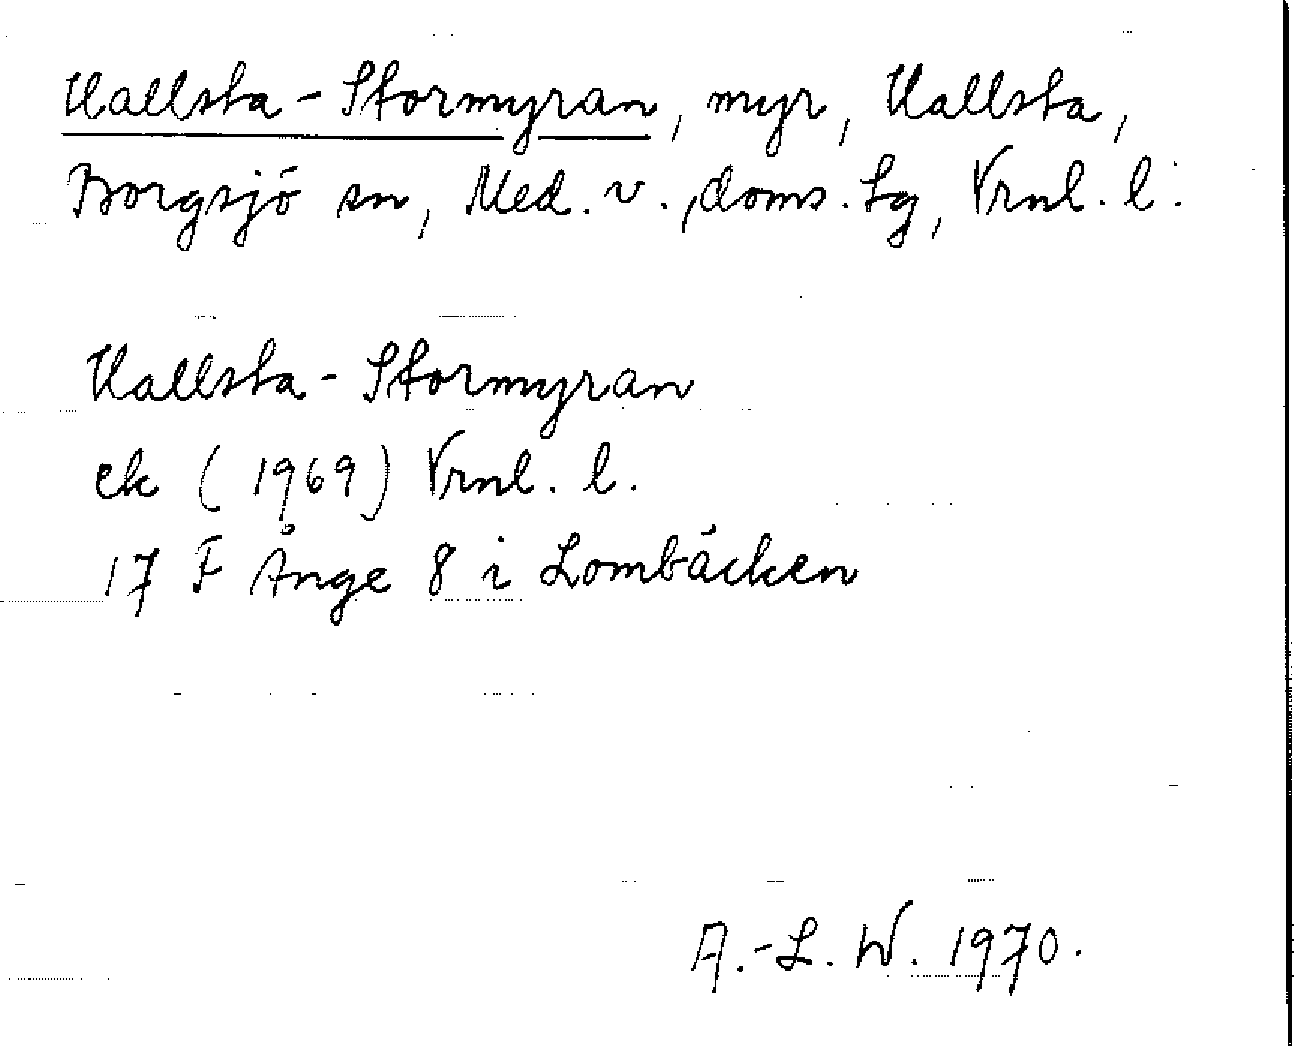 Hallsta-Stormyran, myr, Hallsta,
Borgsjö sn, Med. v., doms. lg, Vrnl. l.
Hallsta-Stormyran
ek (1969) Vrnl. l.
17 F Ånge 8 i Lombäcken
A.-L. W. 1970.